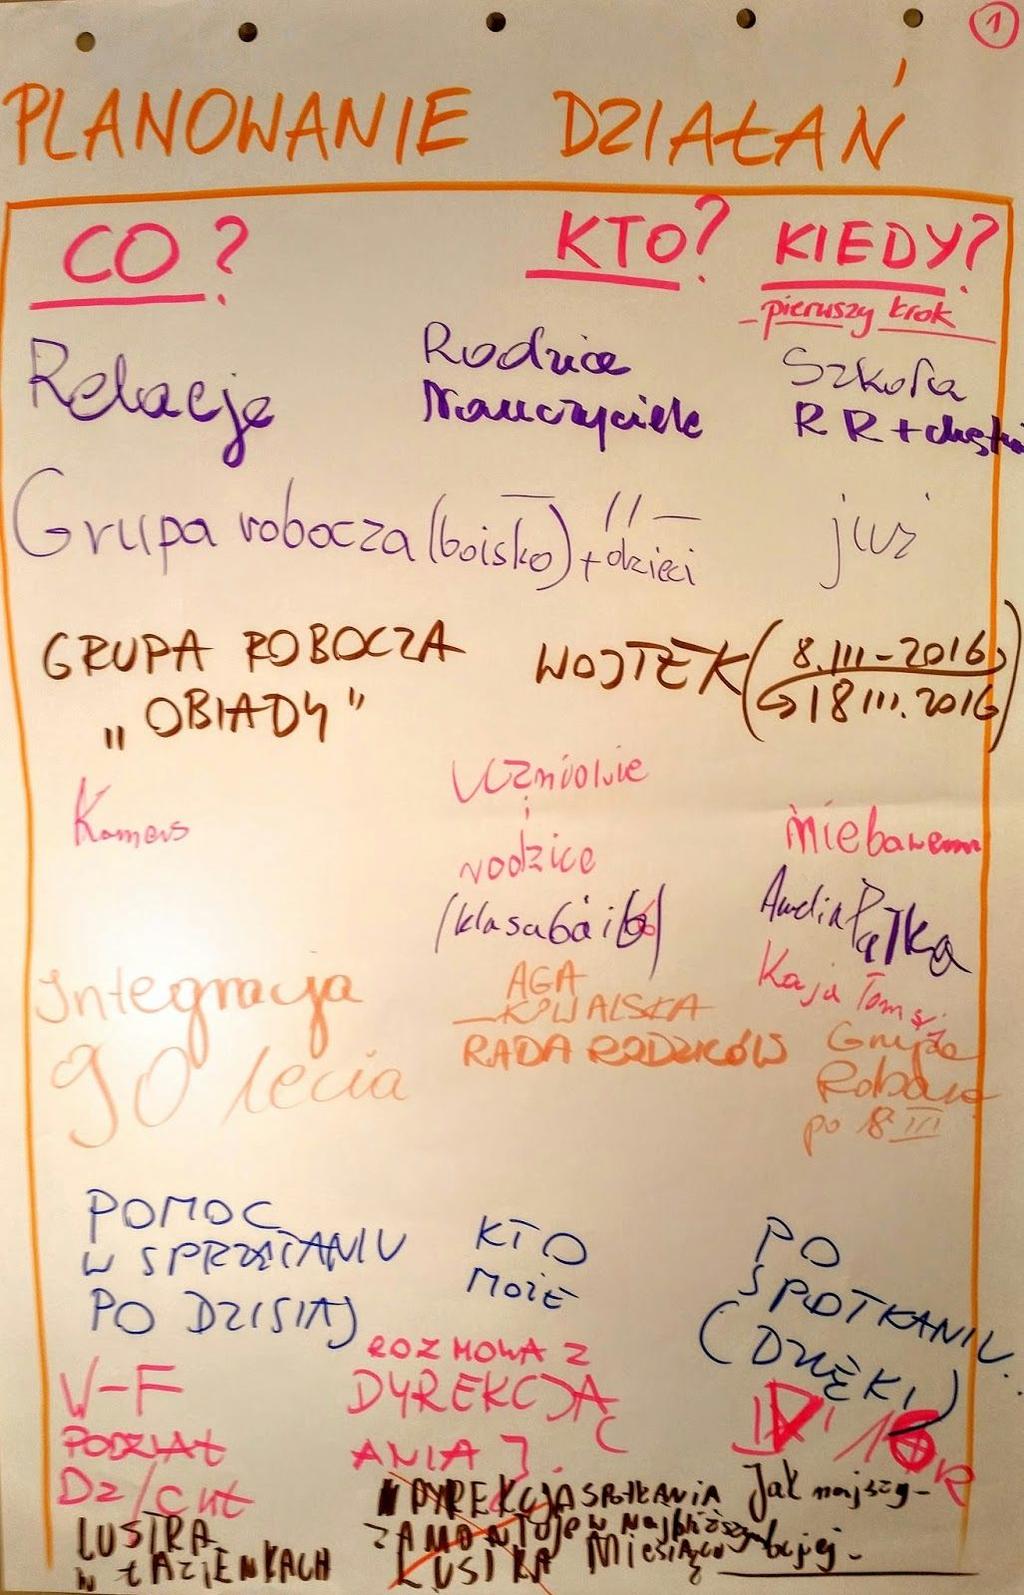 1
PLANOWANIE DZIAŁAŃ
CO? KTO? KIEDY?
pierwszy krok
Relacje Rodzice Szkoła
Nauczyciele RR +
Grupa robocza (boisko) —"— już
+ dzieci
GRUPA ROBOCZA WOJTEK (8.III-2016
„OBIADY" 18 III. 2016)
Uczniowie
i
rodzice
niebawem
(klasa 6a i 6b)
Amelia Pałka
Kaja
Integracja AGA
KOWALSKA
90 lecia RADA RODZICÓW Grupa
Robocza
po 18 III
POMOC KTO PO
W SPRZĄTANIU MOŻE SPOTKANIU
PO DZISIAJ (DZIĘKI)
W-F ROZMOWA Z
DYREKCJĄ
PODZIAŁ ANIA J.
DZ/CHŁ
LUSTRA DYREKCJA SPOTKANIA Jak najszy-
W ŁAZIENKACH ZAMONTUJE W Najbliższym bciej
LUSTRA Miesiącu